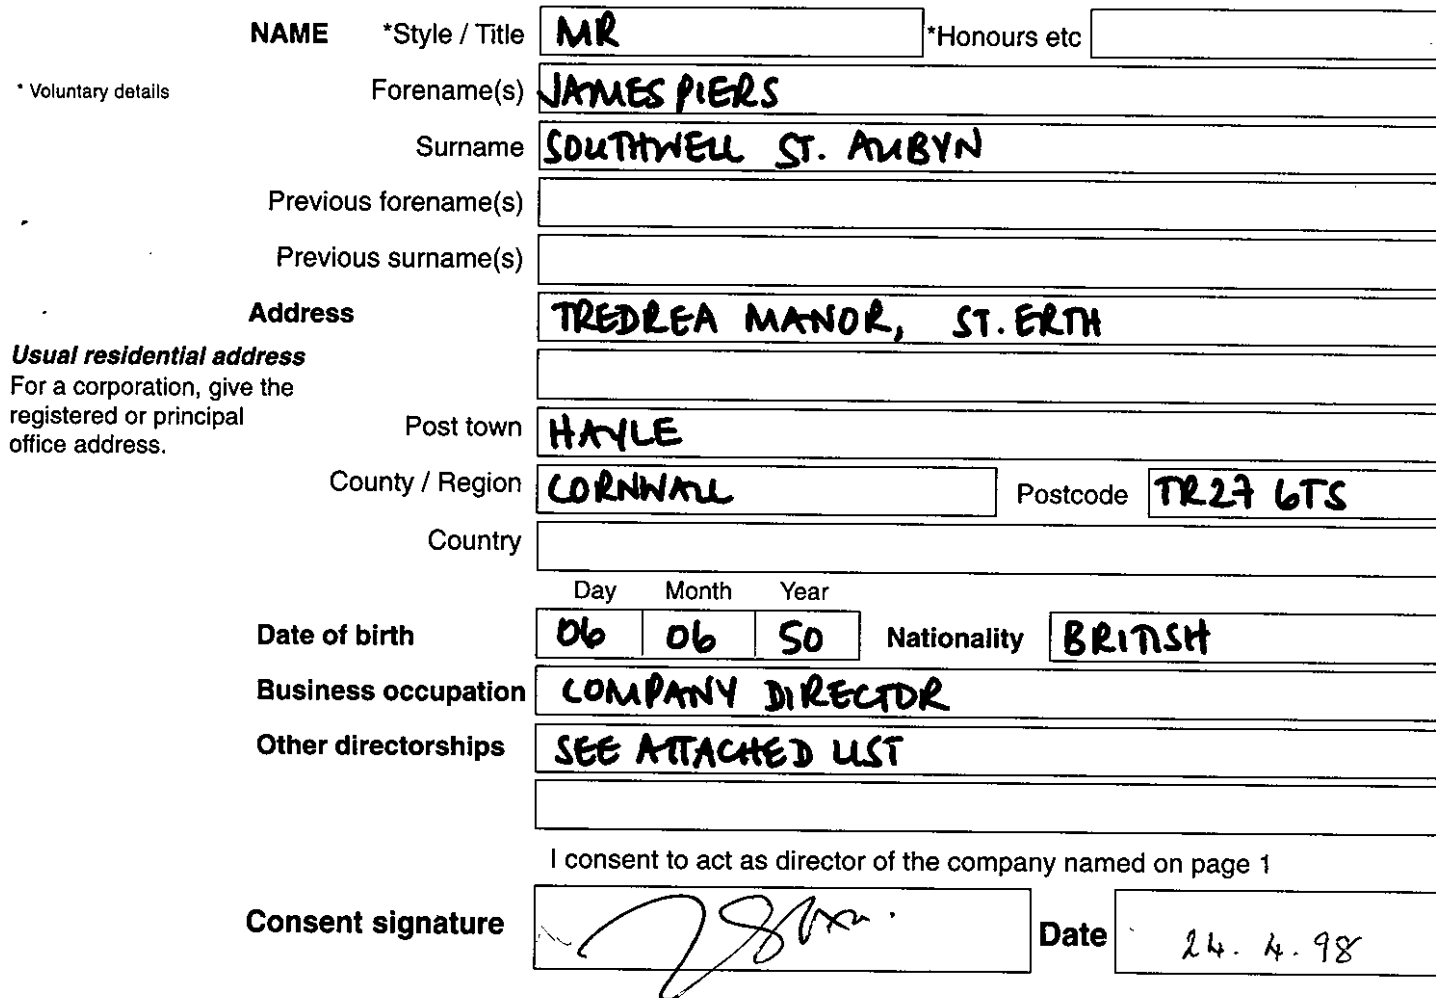 NAME *Style / Title MR *Honours etc
* Voluntary details Forename(s) JAMES PIERS
Surname SOUTHWELL ST. AUBYN
Previous forename(s)
Previous surname(s)
Address TREDREA MANOR, ST. ERTH
Usual residential address
For a corporation, give the
registered or principal
office address.
Post town HAYLE
County / Region CORNWALL Postcode TR27 6TS
Country
Day Month Year
Date of birth 06 06 50 Nationality BRITISH
Business occupation COMPANY DIRECTOR
Other directorships SEE ATTACHED LIST
I consent to act as director of the company named on page 1
Consent signature Date 24. 4. 98